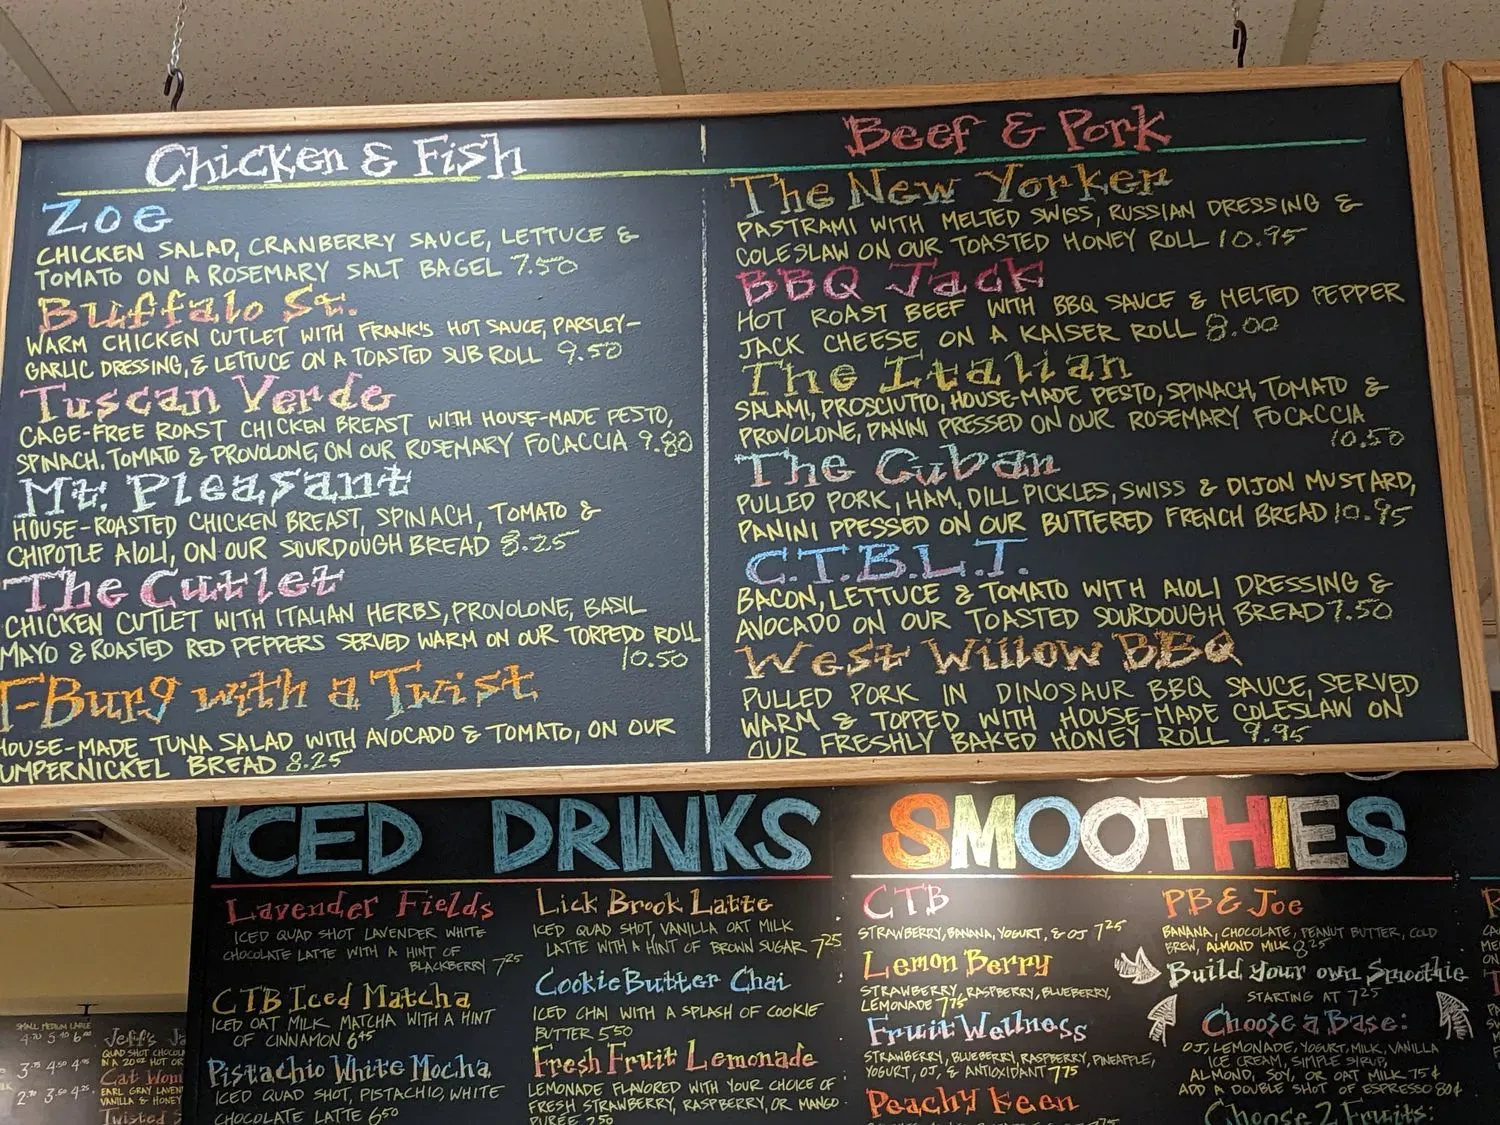 Chicken & Fish
Zoe
CHICKEN SALAD, CRANBERRY SAUCE, LETTUCE &
TOMATO ON A ROSEMARY SALT BAGEL 7.50
Buffalo St.
WARM CHICKEN CUTLET WITH FRANK'S HOT SAUCE, PARSLEY-
GARLIC DRESSING, & LETTUCE ON A TOASTED SUB ROLL 9.50
Tuscan Verde
CAGE-FREE ROAST CHICKEN BREAST WITH HOUSE-MADE PESTO,
SPINACH, TOMATO & PROVOLONE, ON OUR ROSEMARY FOCACCIA 9.80
Mt. Pleasant
HOUSE-ROASTED CHICKEN BREAST, SPINACH, TOMATO &
CHIPOTLE AIOLI, ON OUR SOURDOUGH BREAD 8.25
The Cutlet
CHICKEN CUTLET WITH ITALIAN HERBS, PROVOLONE, BASIL
MAYO & ROASTED RED PEPPERS SERVED WARM ON OUR TORPEDO ROLL
10.50
T-Burg with a Twist
HOUSE-MADE TUNA SALAD WITH AVOCADO & TOMATO, ON OUR
UMPERNICKEL BREAD 8.25
Beef & Pork
The New Yorker
PASTRAMI WITH MELTED SWISS, RUSSIAN DRESSING &
COLESLAW ON OUR TOASTED HONEY ROLL 10.95
BBQ Jack
HOT ROAST BEEF WITH BBQ SAUCE & MELTED PEPPER
JACK CHEESE ON A KAISER ROLL 8.00
The Italian
SALAMI, PROSCIUTTO, HOUSE-MADE PESTO, SPINACH, TOMATO &
PROVOLONE, PANINI PRESSED ON OUR ROSEMARY FOCACCIA
10.50
The Cuban
PULLED PORK, HAM, DILL PICKLES, SWISS & DIJON MUSTARD,
PANINI PPESSED ON OUR BUTTERED FRENCH BREAD 10.95
C.T.B.L.T.
BACON, LETTUCE & TOMATO WITH AIOLI DRESSING &
AVOCADO ON OUR TOASTED SOURDOUGH BREAD 7.50
West Willow BBQ
PULLED PORK IN DINOSAUR BBQ SAUCE, SERVED
WARM & TOPPED WITH HOUSE-MADE COLESLAW ON
OUR FRESHLY BAKED HONEY ROLL 9.95
ICED DRINKS
Lavender Fields
ICED QUAD SHOT LAVENDER WHITE
CHOCOLATE LATTE WITH A HINT OF
BLACKBERRY 7.25
CTB Iced Matcha
ICED OAT MILK MATCHA WITH A HINT
OF CINNAMON 6.45
Pistachio White Mocha
ICED QUAD SHOT, PISTACHIO, WHITE
CHOCOLATE LATTE 6.50
Lick Brook Latte
ICED QUAD SHOT, VANILLA OAT MILK
LATTE WITH A HINT OF BROWN SUGAR 7.25
Cookie Butter Chai
ICED CHAI WITH A SPLASH OF COOKIE
BUTTER 5.50
Fresh Fruit Lemonade
LEMONADE FLAVORED WITH YOUR CHOICE OF
FRESH STRAWBERRY, RASPBERRY, OR MANGO
PURÉE
SMOOTHIES
CTB
STRAWBERRY, BANANA, YOGURT, & OJ 7.25
Lemon Berry
STRAWBERRY, RASPBERRY, BLUEBERRY,
LEMONADE 7.75
Fruit Wellness
STRAWBERRY, BLUEBERRY, RASPBERRY, PINEAPPLE,
YOGURT, OJ, & ANTIOXIDANT 7.75
Peachy Keen
PB & Joe
BANANA, CHOCOLATE, PEANUT BUTTER, COLD
BREW, ALMOND MILK 8.25
Build Your own Smoothie
STARTING AT 7.25
Choose a Base:
OJ, LEMONADE, YOGURT, MILK, VANILLA
ICE CREAM, SIMPLE SYRUP,
ALMOND, SOY, OR OAT MILK 75¢
ADD A DOUBLE SHOT OF ESPRESSO 80¢
Choose 2 Fruits:
SMALL MEDIUM LARGE
Jeff's
QUAD SHOT
Cat
EARL GRAY
VANILLA & HONEY
Twisted